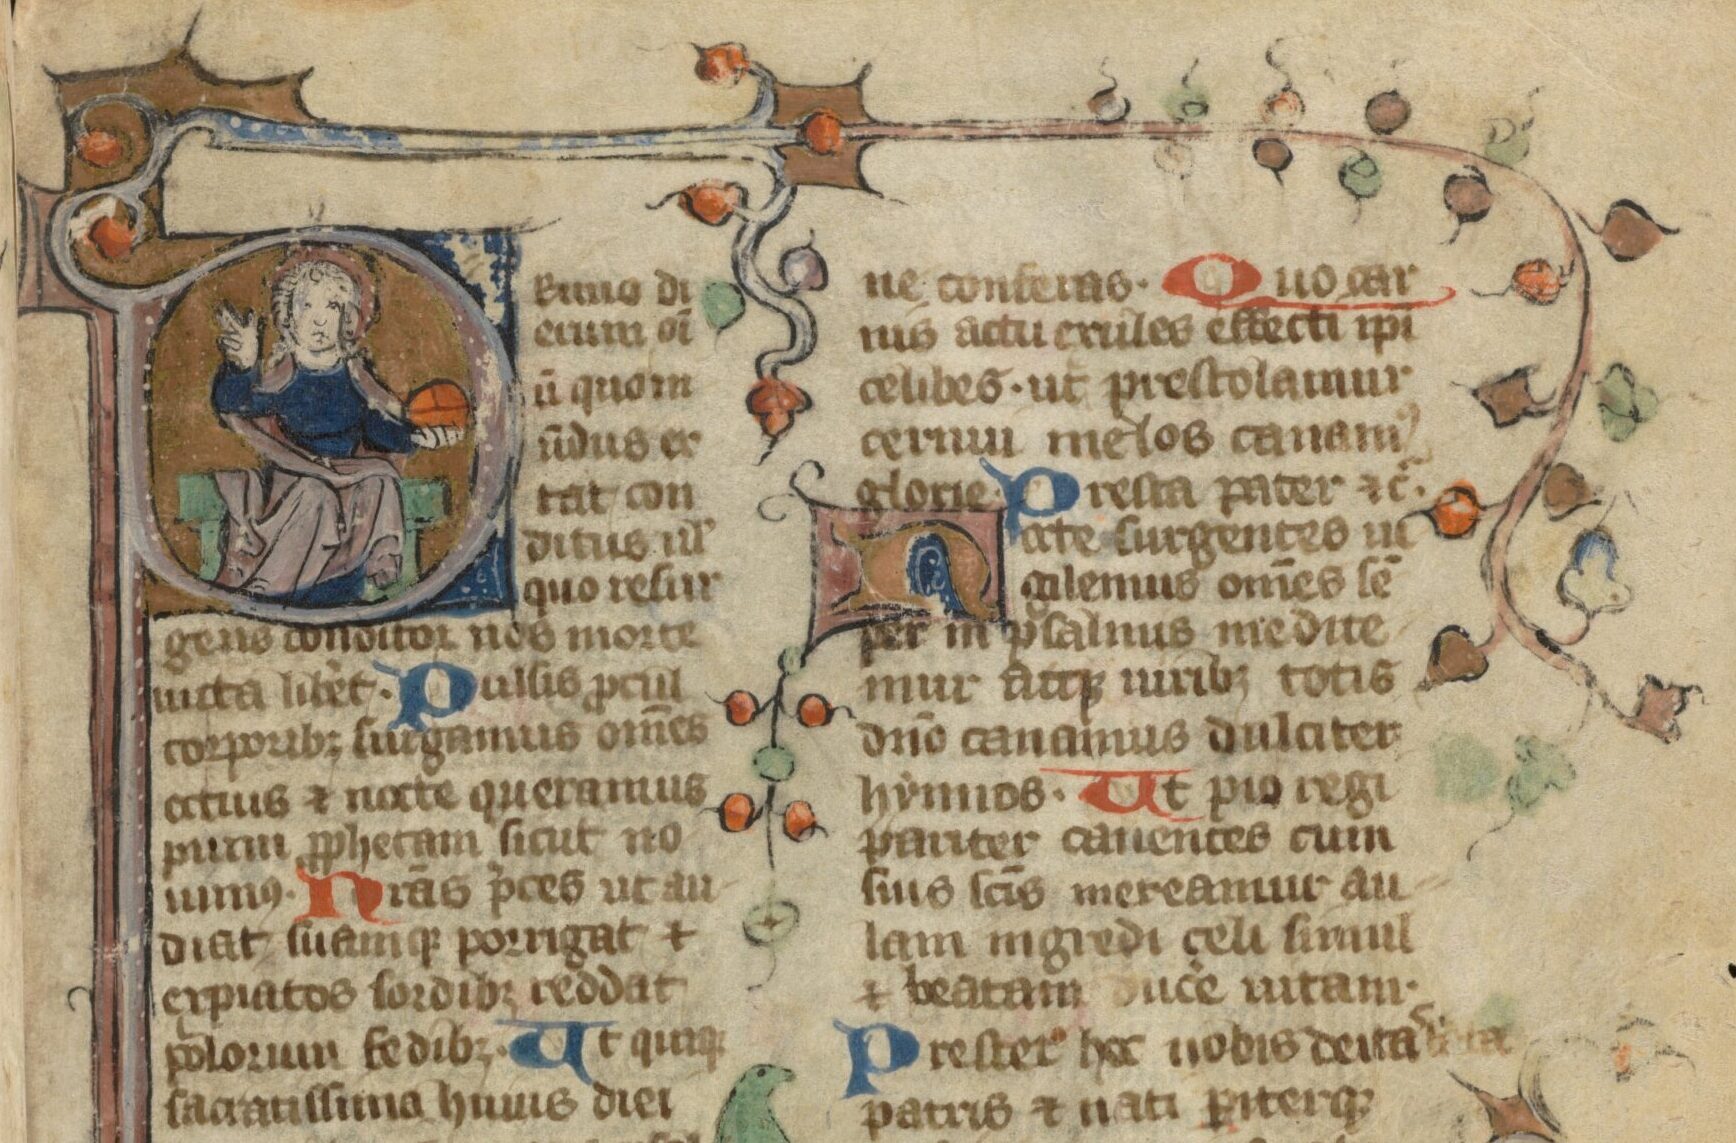 Rimo di
erum oī
ū quom
ūdus ex
tat con
ditus ul'
quo resur
gens conditor nos morte
uicta liber. Pulsis ꝓcul
corporibꝫ surgamus om̄es
ocius ⁊ nocte queramus
pium ꝓphetam sicut no
uimꝰ. Nr̄as p̄ces ut au
diat suamqꝫ porrigat ⁊
expiatos sordibꝫ reddat
polorum sedibꝫ. Ut quiqꝫ
sacratissimo huius diei
ne conferas. Quo car
nis actu exules effecti ipi
celibes. ut prestolamur
cernui melos canamꝰ
glorie. Presta pater ⁊ c̄.
Nocte surgentes ui
gilemus om̄es sē
per in psalmis medite
mur atqꝫ uiribꝫ totis
dn̄o canamus dulciter
hymnos. Ut pio regi
pariter canentes cum
suis sc̄is mereamur au
lam ingredi celi simul
⁊ beatam ducē uitam.
Prestet hoc nobis deitas
patris ⁊ nati pariterqꝫ